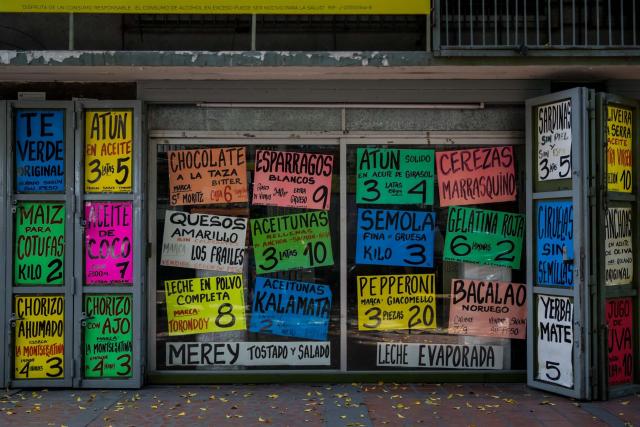 DISFRUTA DE UN CONSUMO RESPONSABLE. EL CONSUMO DE ALCOHOL EN EXCESO PUEDE SER NOCIVO PARA LA SALUD
TE
VERDE
ORIGINAL
MAIZ
PARA
COTUFAS
KILO 2
CHORIZO
AHUMADO
LA MONTSERRATINA
4 3
ATUN
EN ACEITE
3 LATAS 5
ACEITE
DE
COCO
7
CHORIZO
CON AJO
MARCA
LA MONTSERRATINA
4 3
CHOCOLATE
A LA TAZA
BITTER
MARCA
ST. MORITZ
6
QUESOS
AMARILLO
SIN CORTAR
MARCA LOS FRAILES
LECHE EN POLVO
COMPLETA
MARCA
TORONDOY 8
MEREY TOSTADO Y SALADO
ESPARRAGOS
BLANCOS
9
ACEITUNAS
RELLENAS
3 LATAS 10
ACEITUNAS
KALAMATA
ATUN SOLIDO
EN ACEITE DE GIRASOL
3 LATAS 4
SEMOLA
FINA O GRUESA
KILO 3
PEPPERONI
MARCA: GIACOMELLO
3 PIEZAS 20
LECHE EVAPORADA
CEREZAS
MARRASQUINO
GELATINA ROJA
6 2
BACALAO
NORUEGO
SARDINAS
SIN PIEL
3 5
CIRUELAS
SIN
SEMILLAS
YERBA
MATE
5
10
ANCHOAS
EN ACEITE
DE OLIVA
JUGO
DE
UVA
10